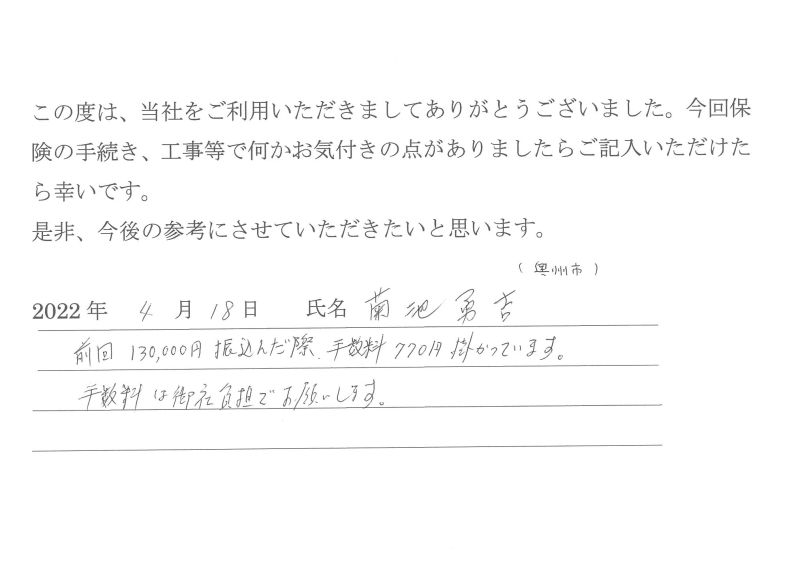 この度は、当社をご利用いただきましてありがとうございました。今回保
険の手続き、工事等で何かお気付きの点がありましたらご記入いただけた
ら幸いです。
是非、今後の参考にさせていただきたいと思います。
(奥州市)
2022年 4月 18日 氏名 菊池勇吉
前回 130,000円 振込んだ際、手数料 770円 掛かっています。
手数料は御社負担でお願いします。